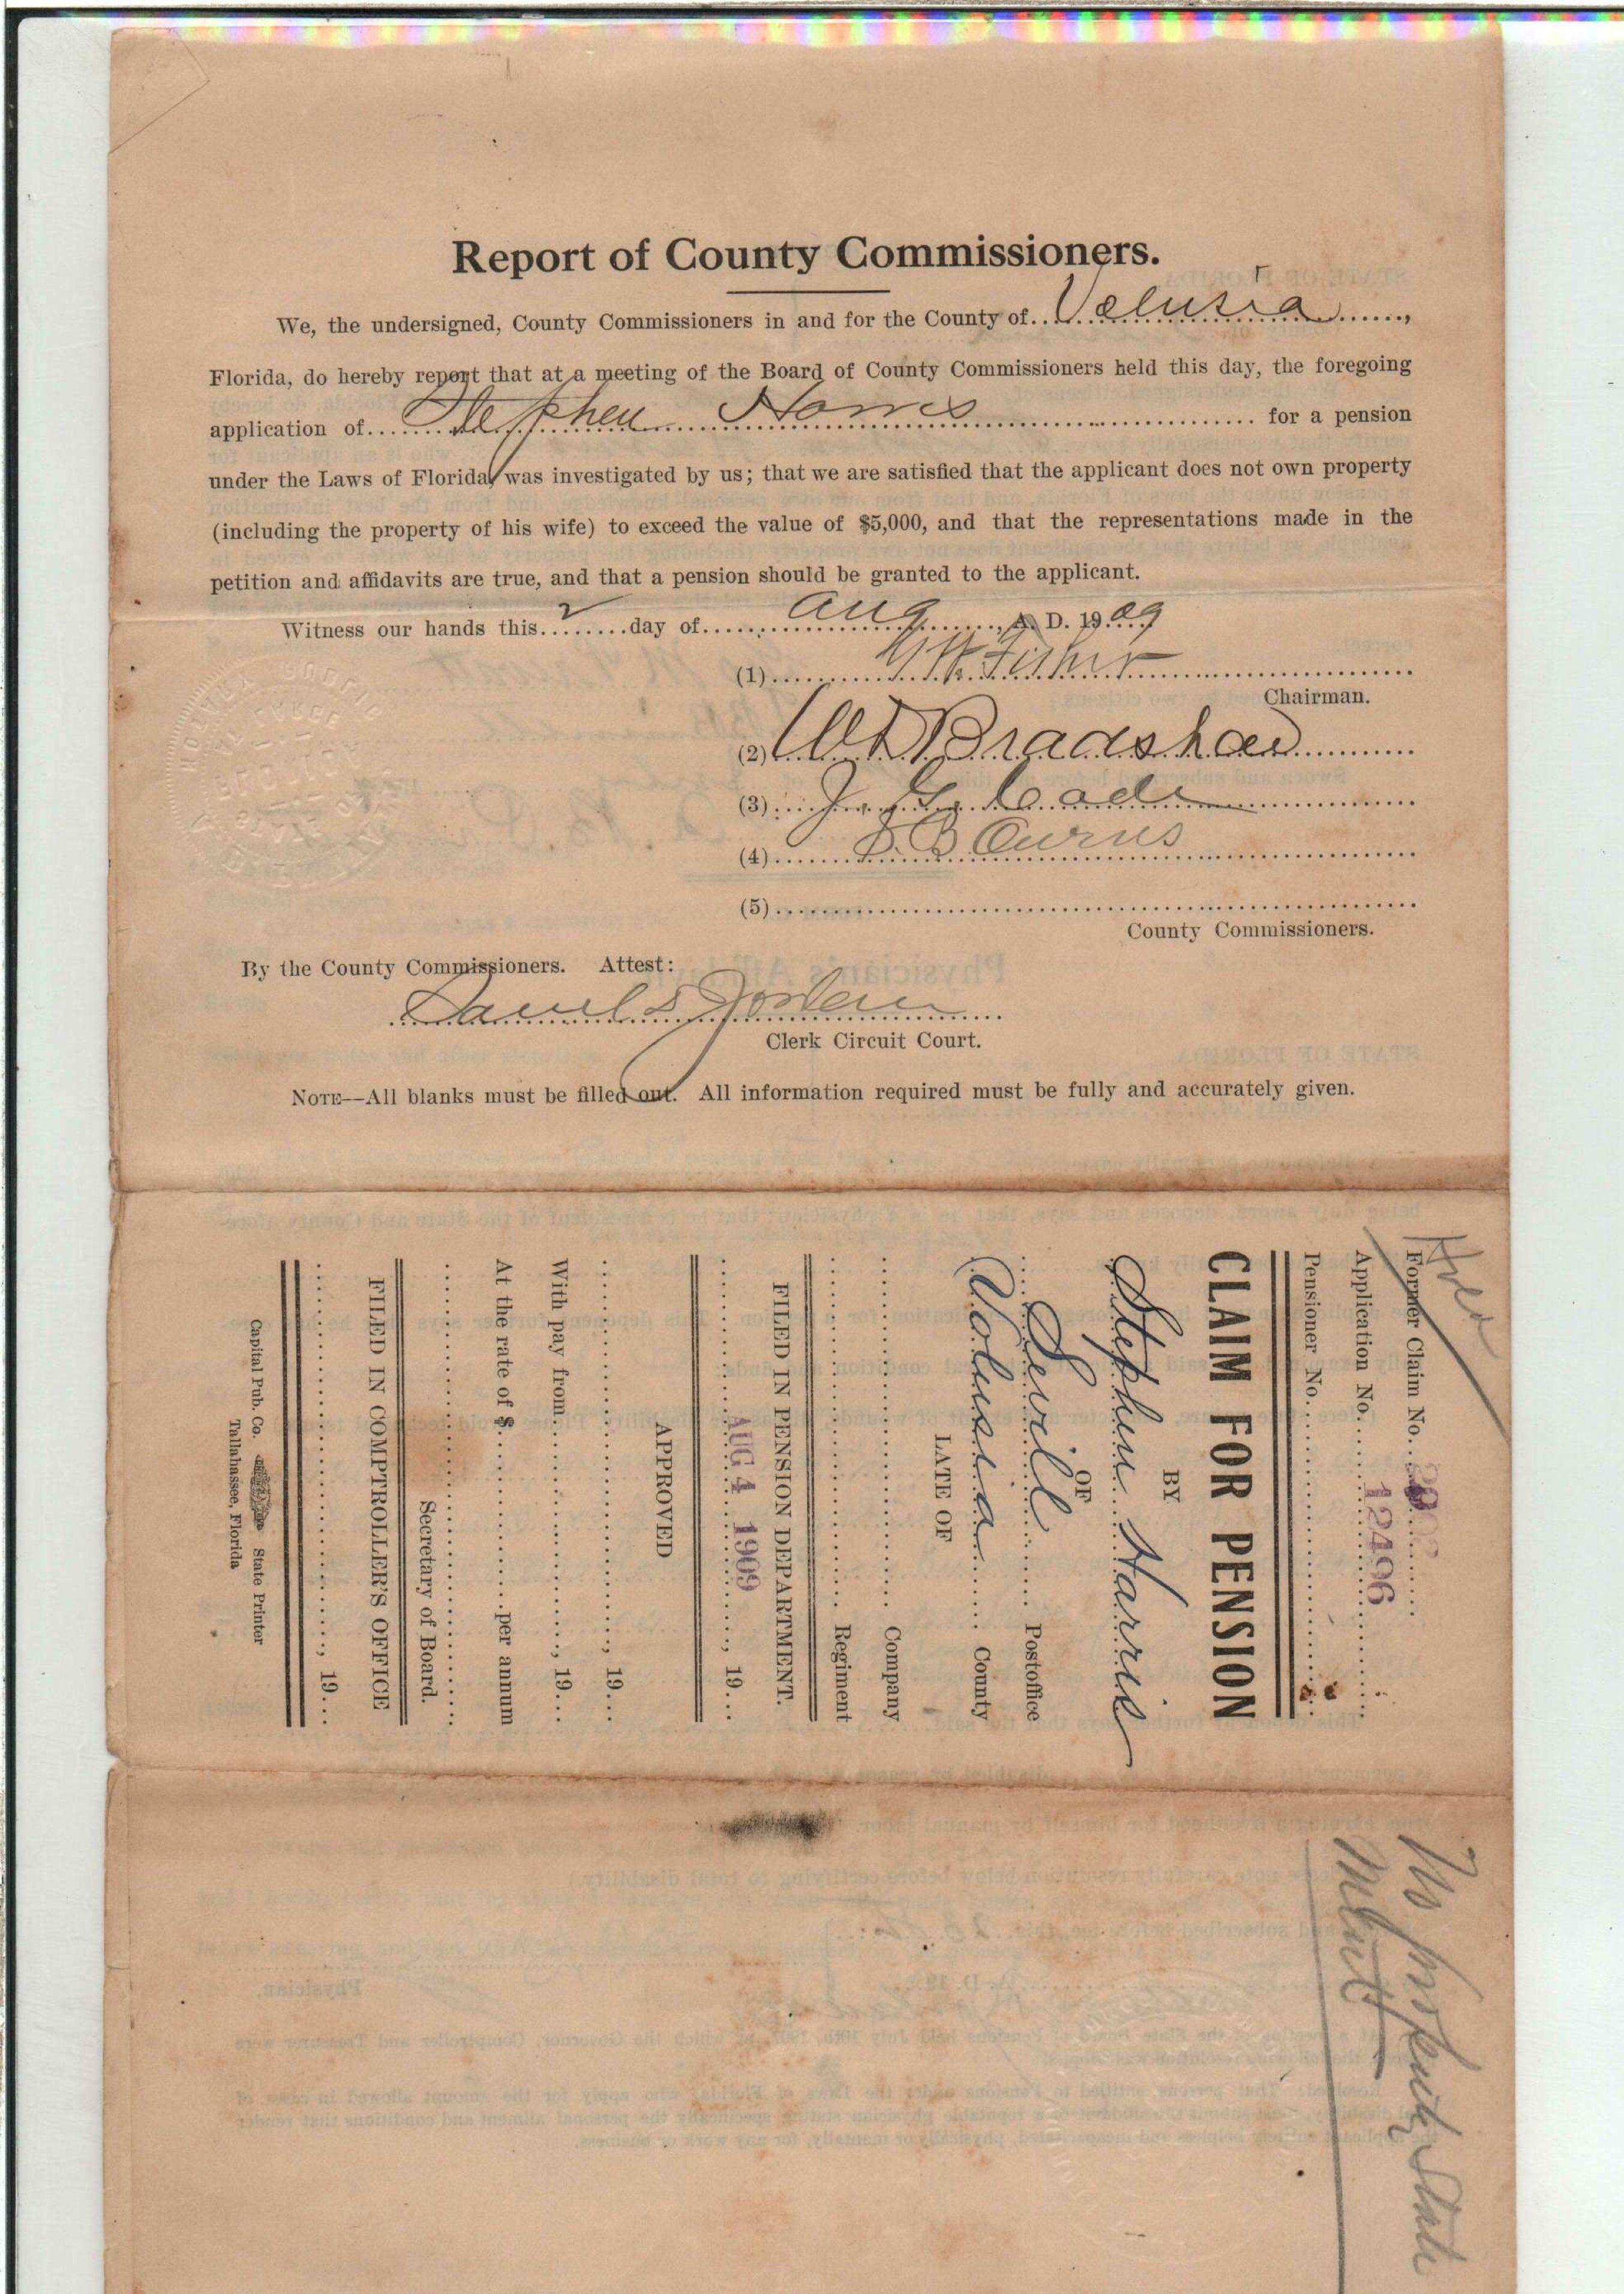 Report of County Commissioners.
We, the undersigned, County Commissioners in and for the County of Volusia,
Florida, do hereby report that at a meeting of the Board of County Commissioners held this day, the foregoing
application of Stephen Harris for a pension
under the Laws of Florida, was investigated by us; that we are satisfied that the applicant does not own property
(including the property of his wife) to exceed the value of $5,000, and that the representations made in the
petition and affidavits are true, and that a pension should be granted to the applicant.
Witness our hands this 2 day of Aug, A. D. 1909
(1) Fisher
Chairman.
(2) Bradshaw
(3) J. G.
(4)
(5)
County Commissioners.
By the County Commissioners. Attest:
Samuel D Jordan
Clerk Circuit Court.
NOTE—All blanks must be filled out. All information required must be fully and accurately given.
Former Claim No.
Application No. 12496
Pensioner No.
CLAIM FOR PENSION
BY
Stephen Harris
OF
Sevile Postoffice
Volusia County
LATE OF
Company
Regiment
FILED IN PENSION DEPARTMENT.
AUG 4 1909, 19
APPROVED
, 19
With pay from, 19
At the rate of $ per annum
Secretary of Board.
FILED IN COMPTROLLER'S OFFICE
, 19
Capital Pub. Co. State Printer
Tallahassee, Florida
No State